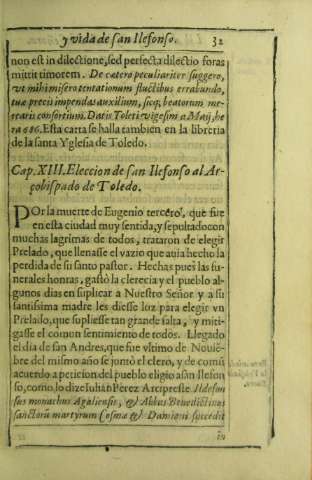 y vida de san Ilefonso. 32
non est in dilectione, sed perfecta dilectio foras
mittit timorem. De cætero peculiariter suggero,
vt mihi misero tentationum fluctibus errabundo,
tuæ precis impendas auxilium, sicq; beatorum me-
rearis consortium. Datis Toleti vigesima Maij, he
ra 686. Esta carta se halla tambien en la libreria
de la santa Yglesia de Toledo.
Cap. XIII. Eleccion de san Ilefonso al Ar-
çobispado de Toledo.
POr la muerte de Eugenio tercero, que fue
en esta ciudad muy sentida, y sepultado con
muchas lagrimas de todos, trataron de elegir
Prelado, que llenasse el vazio que auia hecho la
perdida de su santo pastor. Hechas pues las fu-
nerales honras, gastò la clerecia y el pueblo al-
gunos dias en suplicar a Nuestro Señor y a su
santissima madre les diesse luz para elegir vn
Prelado, que supliesse tan grande falta, y miti-
gasse el comun sentimiento de todos. Llegado
el dia de san Andres, que fue vltimo de Nouiē-
bre del mismo año se juntò el clero, y de comū
acuerdo a peticion del pueblo eligio a san Ilefon
so, como lo dize Iulian Perez Arcipreste. Ildefon
sus monachus Agaliensis, & Abbas Benedictinus
sanctorū martyrum Cosmæ & Damiani succedit
in